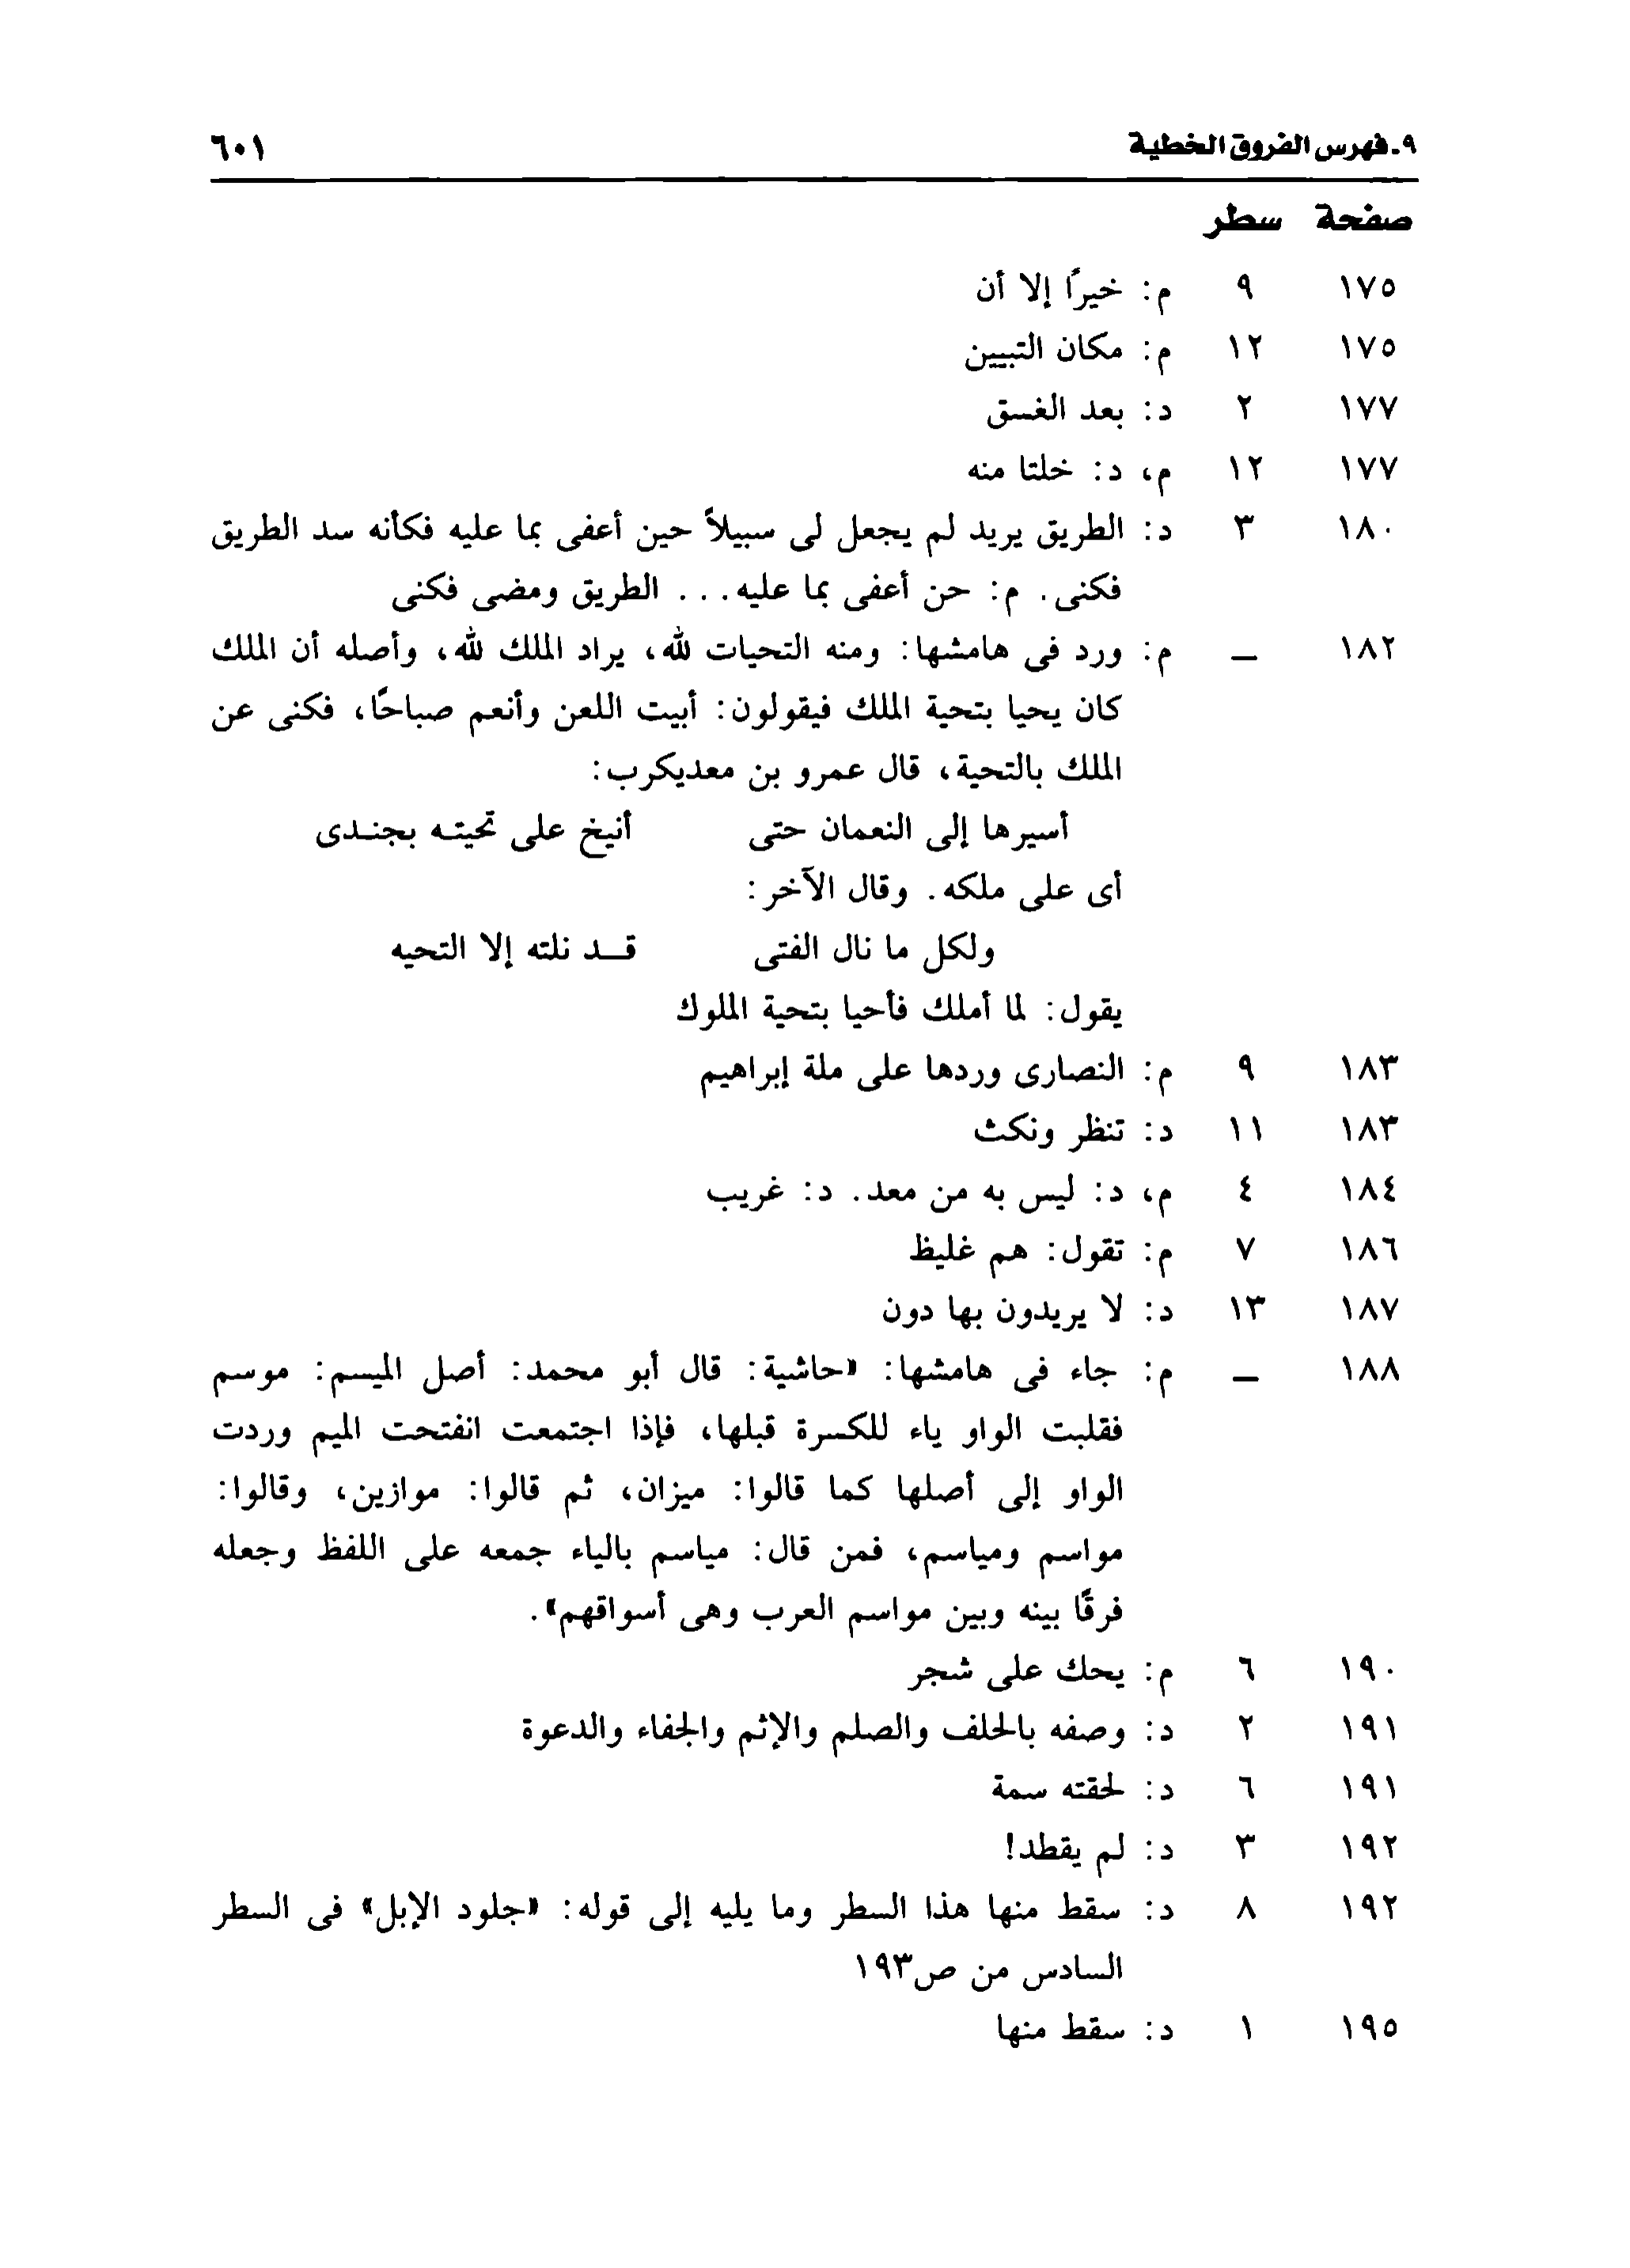 ٩ـ فهرس الفروق الخطية ٦٠١
صفحة سطر
١٧٥ ٩ م: خيرًا إلا أن
١٧٥ ١٢ م: مكان التبيين
١٧٧ ٢ د: بعد الغسق
١٧٧ ١٢ م، د: خلتا منه
١٨٠ ٣ د: الطريق يريد لم يجعل لى سبيلاً حين أعفى بما عليه فكأنه سد الطريق
فكنى. م: حن أعفى بما عليه... الطريق ومضى فكنى
١٨٢ ــ م: ورد فى هامشها: ومنه التحيات لله، يراد الملك لله، وأصله أن الملك
كان يحيا بتحية الملك فيقولون: أبيت اللعن وأنعم صباحًا، فكنى عن
الملك بالتحية، قال عمرو بن معديكرب:
أسيرها إلى النعمان حتى أنيخ على تحيتـه بجنـدى
أى على ملكه. وقال الآخر:
ولكل ما نال الفتى قــد نلته إلا التحيه
يقول: لما أملك فأحيا بتحية الملوك
١٨٣ ٩ م: النصارى وردها على ملة إبراهيم
١٨٣ ١١ د: تنظر ونكث
١٨٤ ٤ م، د: ليس به من معد. د: غريب
١٨٦ ٧ م: تقول: هم غليظ
١٨٧ ١٣ د: لا يريدون بها دون
١٨٨ ــ م: جاء فى هامشها: «حاشية: قال أبو محمد: أصل الميسم: موسم
فقلبت الواو ياء للكسرة قبلها، فإذا اجتمعت انفتحت الميم وردت
الواو إلى أصلها كما قالوا: ميزان، ثم قالوا: موازين، وقالوا:
مواسم ومياسم، فمن قال: مياسم بالياء جمعه على اللفظ وجعله
فرقًا بينه وبين مواسم العرب وهى أسواقهم».
١٩٠ ٦ م: يحك على شجر
١٩١ ٢ د: وصفه بالحلف والصلم والإثم والجفاء والدعوة
١٩١ ٦ د: لحقته سمة
١٩٢ ٣ د: لم يقطد!
١٩٢ ٨ د: سقط منها هذا السطر وما يليه إلى قوله: «جلود الإبل» فى السطر
السادس من ص١٩٣
١٩٥ ١ د: سقط منها